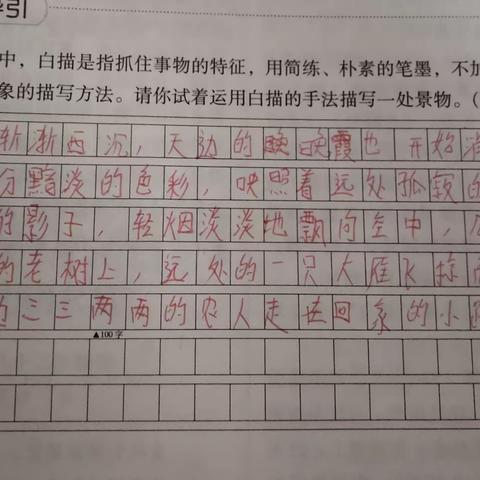 引
中，白描是指抓住事物的特征，用简练、朴素的笔墨，不加
象的描写方法。请你试着运用白描的手法描写一处景物。（
渐渐西沉，天边的晚晚霞也开始消
分黯淡的色彩，映照着远处孤寂的
的影子，轻烟淡淡地飘向空中，
的老树上，远处的一只大雁飞掠
三三两两的农人走在回家的小
▲100字